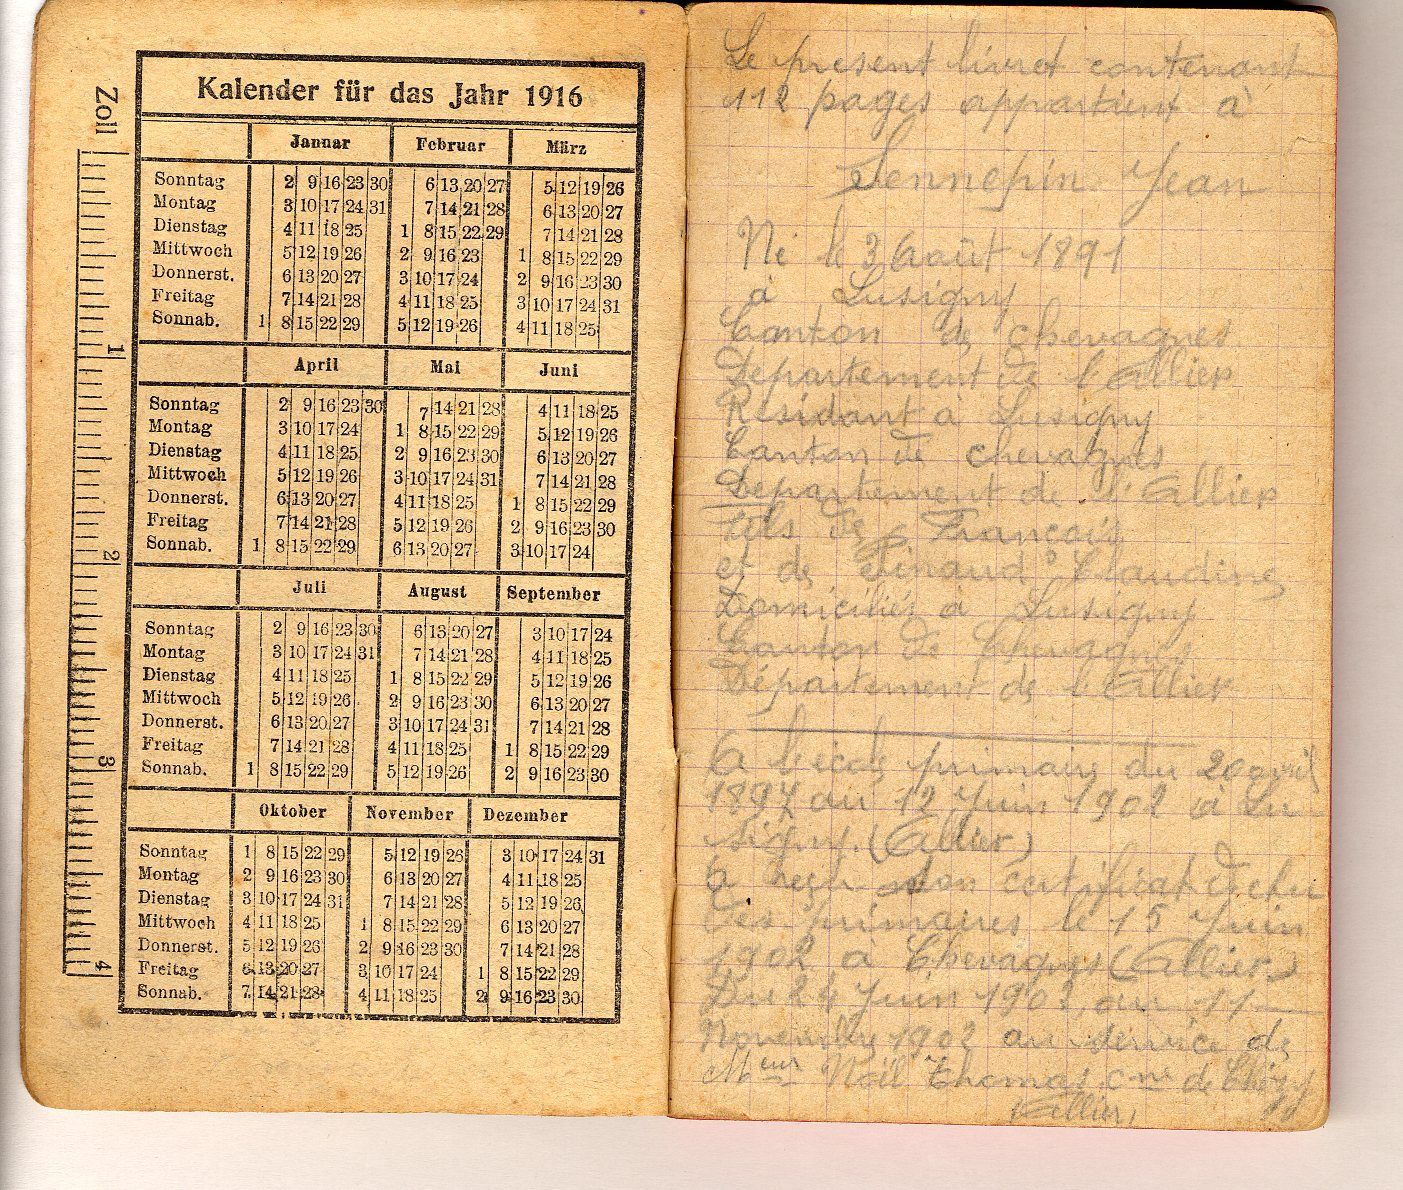 Zoll
1
2
3
4
Kalender für das Jahr 1916
Januar Februar März
Sonntag 2 9 16 23 30 6 13 20 27 5 12 19 26
Montag 3 10 17 24 31 7 14 21 28 6 13 20 27
Dienstag 4 11 18 25 1 8 15 22 29 7 14 21 28
Mittwoch 5 12 19 26 2 9 16 23 1 8 15 22 29
Donnerst. 6 13 20 27 3 10 17 24 2 9 16 23 30
Freitag 7 14 21 28 4 11 18 25 3 10 17 24 31
Sonnab. 1 8 15 22 29 5 12 19 26 4 11 18 25
April Mai Juni
Sonntag 2 9 16 23 30 7 14 21 28 4 11 18 25
Montag 3 10 17 24 1 8 15 22 29 5 12 19 26
Dienstag 4 11 18 25 2 9 16 23 30 6 13 20 27
Mittwoch 5 12 19 26 3 10 17 24 31 7 14 21 28
Donnerst. 6 13 20 27 4 11 18 25 1 8 15 22 29
Freitag 7 14 21 28 5 12 19 26 2 9 16 23 30
Sonnab. 1 8 15 22 29 6 13 20 27 3 10 17 24
Juli August September
Sonntag 2 9 16 23 30 6 13 20 27 3 10 17 24
Montag 3 10 17 24 31 7 14 21 28 4 11 18 25
Dienstag 4 11 18 25 1 8 15 22 29 5 12 19 26
Mittwoch 5 12 19 26 2 9 16 23 30 6 13 20 27
Donnerst. 6 13 20 27 3 10 17 24 31 7 14 21 28
Freitag 7 14 21 28 4 11 18 25 1 8 15 22 29
Sonnab. 1 8 15 22 29 5 12 19 26 2 9 16 23 30
Oktober November Dezember
Sonntag 1 8 15 22 29 5 12 19 26 3 10 17 24 31
Montag 2 9 16 23 30 6 13 20 27 4 11 18 25
Dienstag 3 10 17 24 31 7 14 21 28 5 12 19 26
Mittwoch 4 11 18 25 1 8 15 22 29 6 13 20 27
Donnerst. 5 12 19 26 2 9 16 23 30 7 14 21 28
Freitag 6 13 20 27 3 10 17 24 1 8 15 22 29
Sonnab. 7 14 21 28 4 11 18 25 2 9 16 23 30
Le present livret contenant
112 pages appartient à
Jennepin Jean
Né le 3 Août 1891
à Lusigny
Canton de Chevagnes
Departement de l'Allier
Résidant à Lusigny
Canton de Chevagnes
Departement de l'Allier
fils de François
et de Pinaud Claudine
Domiciliés à Lusigny
Canton de Chevagnes
Département de l'Allier
A l'école primaire du 20 avril
1897 au 12 Juin 1902 à Lu
signy. (Allier)
A reçu son certificat d'etu
des primaires le 15 Juin
1902 à Chevagnes (Allier)
Du 24 Juin 1902 au 11
Novembre 1902 au service de
Meur Noël Thomas cne de Chézy
(Allier)